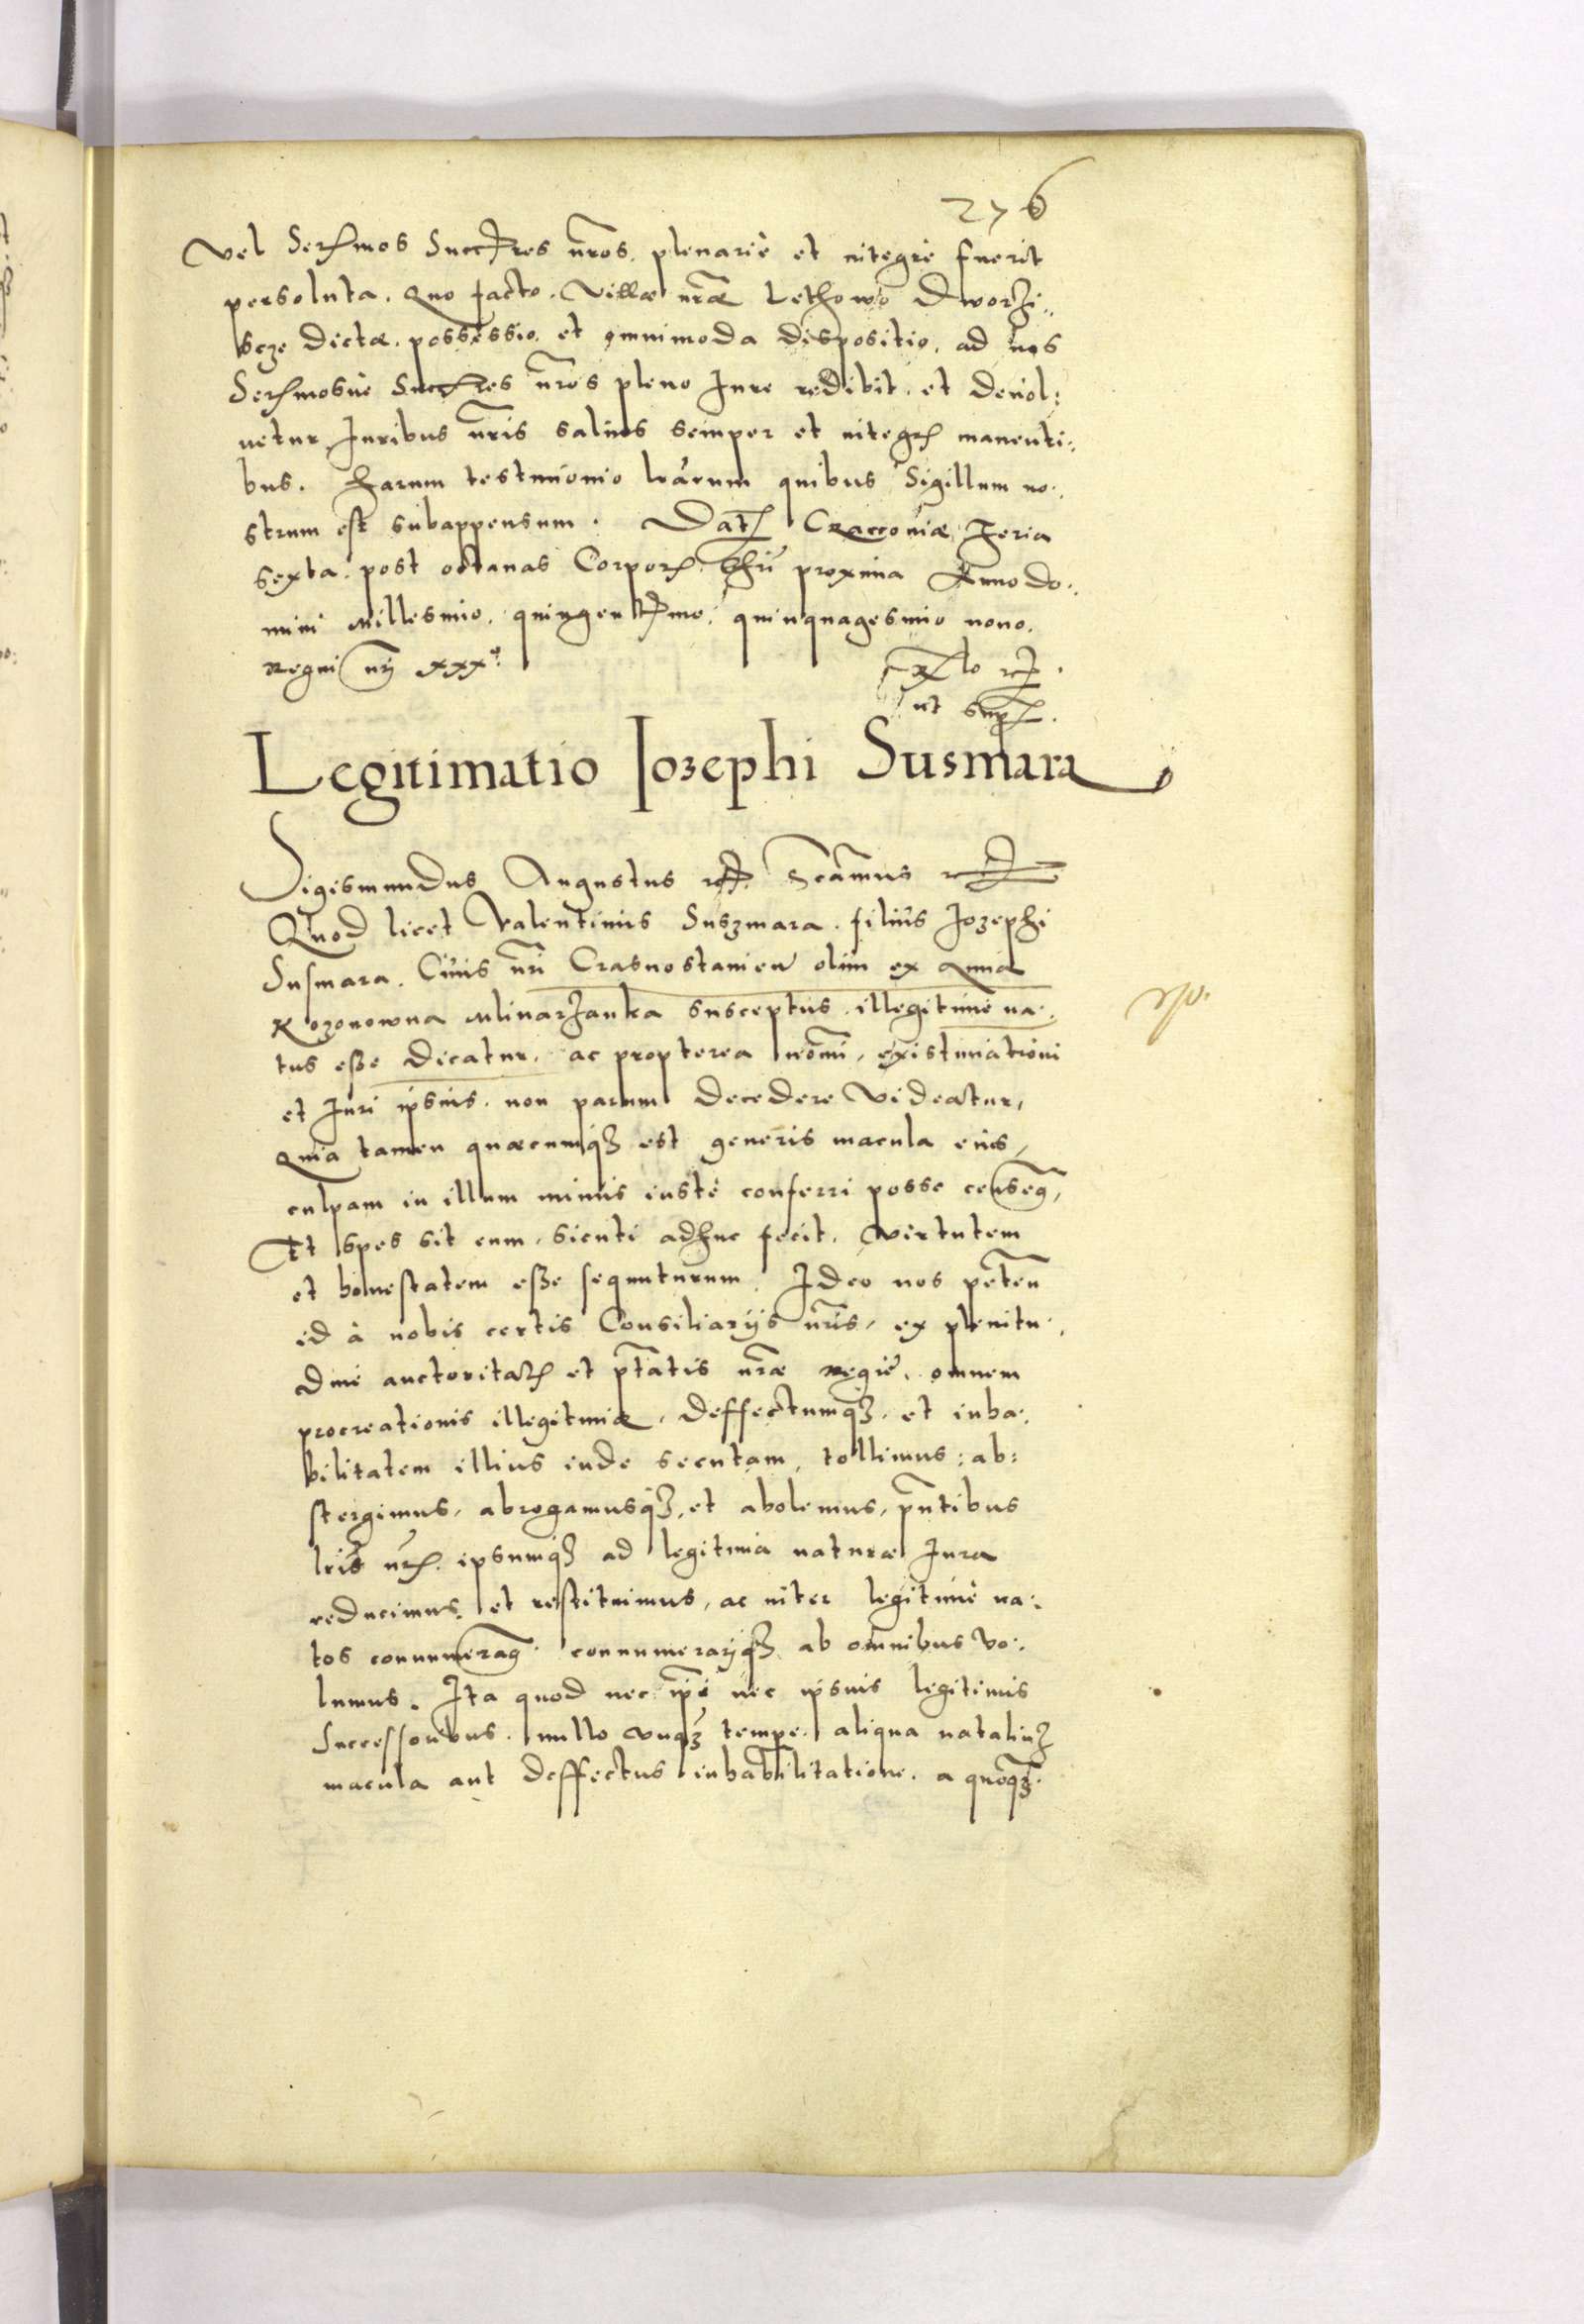 276
Vel Ser̃mos Succ̃res nr̃os. plenariè et integrè fuerit
persoluta. Quo facto. Villæ nr̃æ Lethowo Dworzi„
scze dictæ. possessio. et omnimoda dispositio. ad nos
Ser̃mosvè Succ̃res nr̃os pleno Jure redibit. et deuol:
uetur Juribus nr̃is saluis semper et integr̃ manenti:
bus. Harum testimonio lrãrum quibus Sigillum no:
strum est subappensum. Dat̃ Cracouiæ Feria
sexta. post octauas Corpor̃ Chr̃i proxima Anno do:
mini Millesimo. quingent̃mo. quinquagesimo nono.
Regni nr̃i xxx.
ut supr̃.
Legitimatio Iozephi Susmara
Sigismundus Augustus etc. Scãmus etc.
Quod licet Valentinus Suszmara. filius Jozephi
Susmara. Ciuis nr̃i Crasnostauien̄ olim ex Anna
Kozonowna Mlinarzanka susceptus. illegitimè na:
tus esse dicatur. ac propterea nomĩ, existimationi
et Juri ipsius. non parum decedere videatur,
Quia tamen quæcumq́ꝫ est generis macula eius,
culpam in illum minus iustè conferri posse censem̃,
Et spes sit eum, sicuti adhuc fecit. virtutem
et honestatem esse sequuturum. Ideo nos peten̄
id à nobis certis Consiliarijs nr̃is, ex plenitu:
dine auctoritat̃ et ptãtis nr̃æ Regiè. omnem
procreationis illegitimæ, deffectumq́ꝫ. et inha:
bilitatem illius inde secutam, tollimus: ab:
stergimus, abrogamusq́ꝫ, et abolemus, pñtibus
lr̃is nr̃. ipsumq́ꝫ ad legitima naturæ Jura
reducimus. et restituimus, ac inter legitimè na:
tos connumeram̃. connumerarijq́ꝫ ab omnibus vo:
lumus. Ita quod nec ip̃i nec ipsius legitimis
Successoribus. nullo vnq̃ꝫ tempe. aliqua nataliuꝫ
macula aut deffectus inhabilitatione. a quoq̃ꝫ.